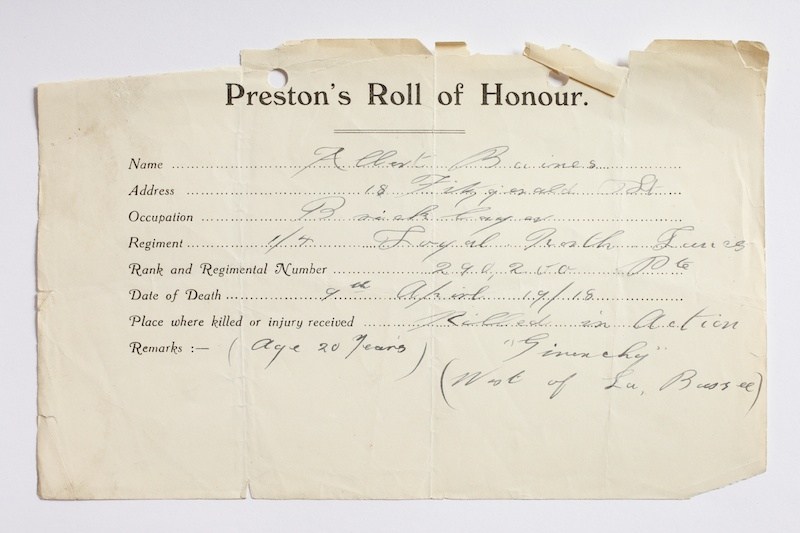 Preston's Roll of Honour.
Name Albert Baines
Address 18 Fitzgerald St
Occupation Bricklayer
Regiment 1/4 Loyal North Lancs
Rank and Regimental Number 290,200 Pte
Date of Death 9th April 19/18
Place where killed or injury received Killed in Action
Remarks :— (Age 20 Years) "Givenchy"
(West of La, Bassee)